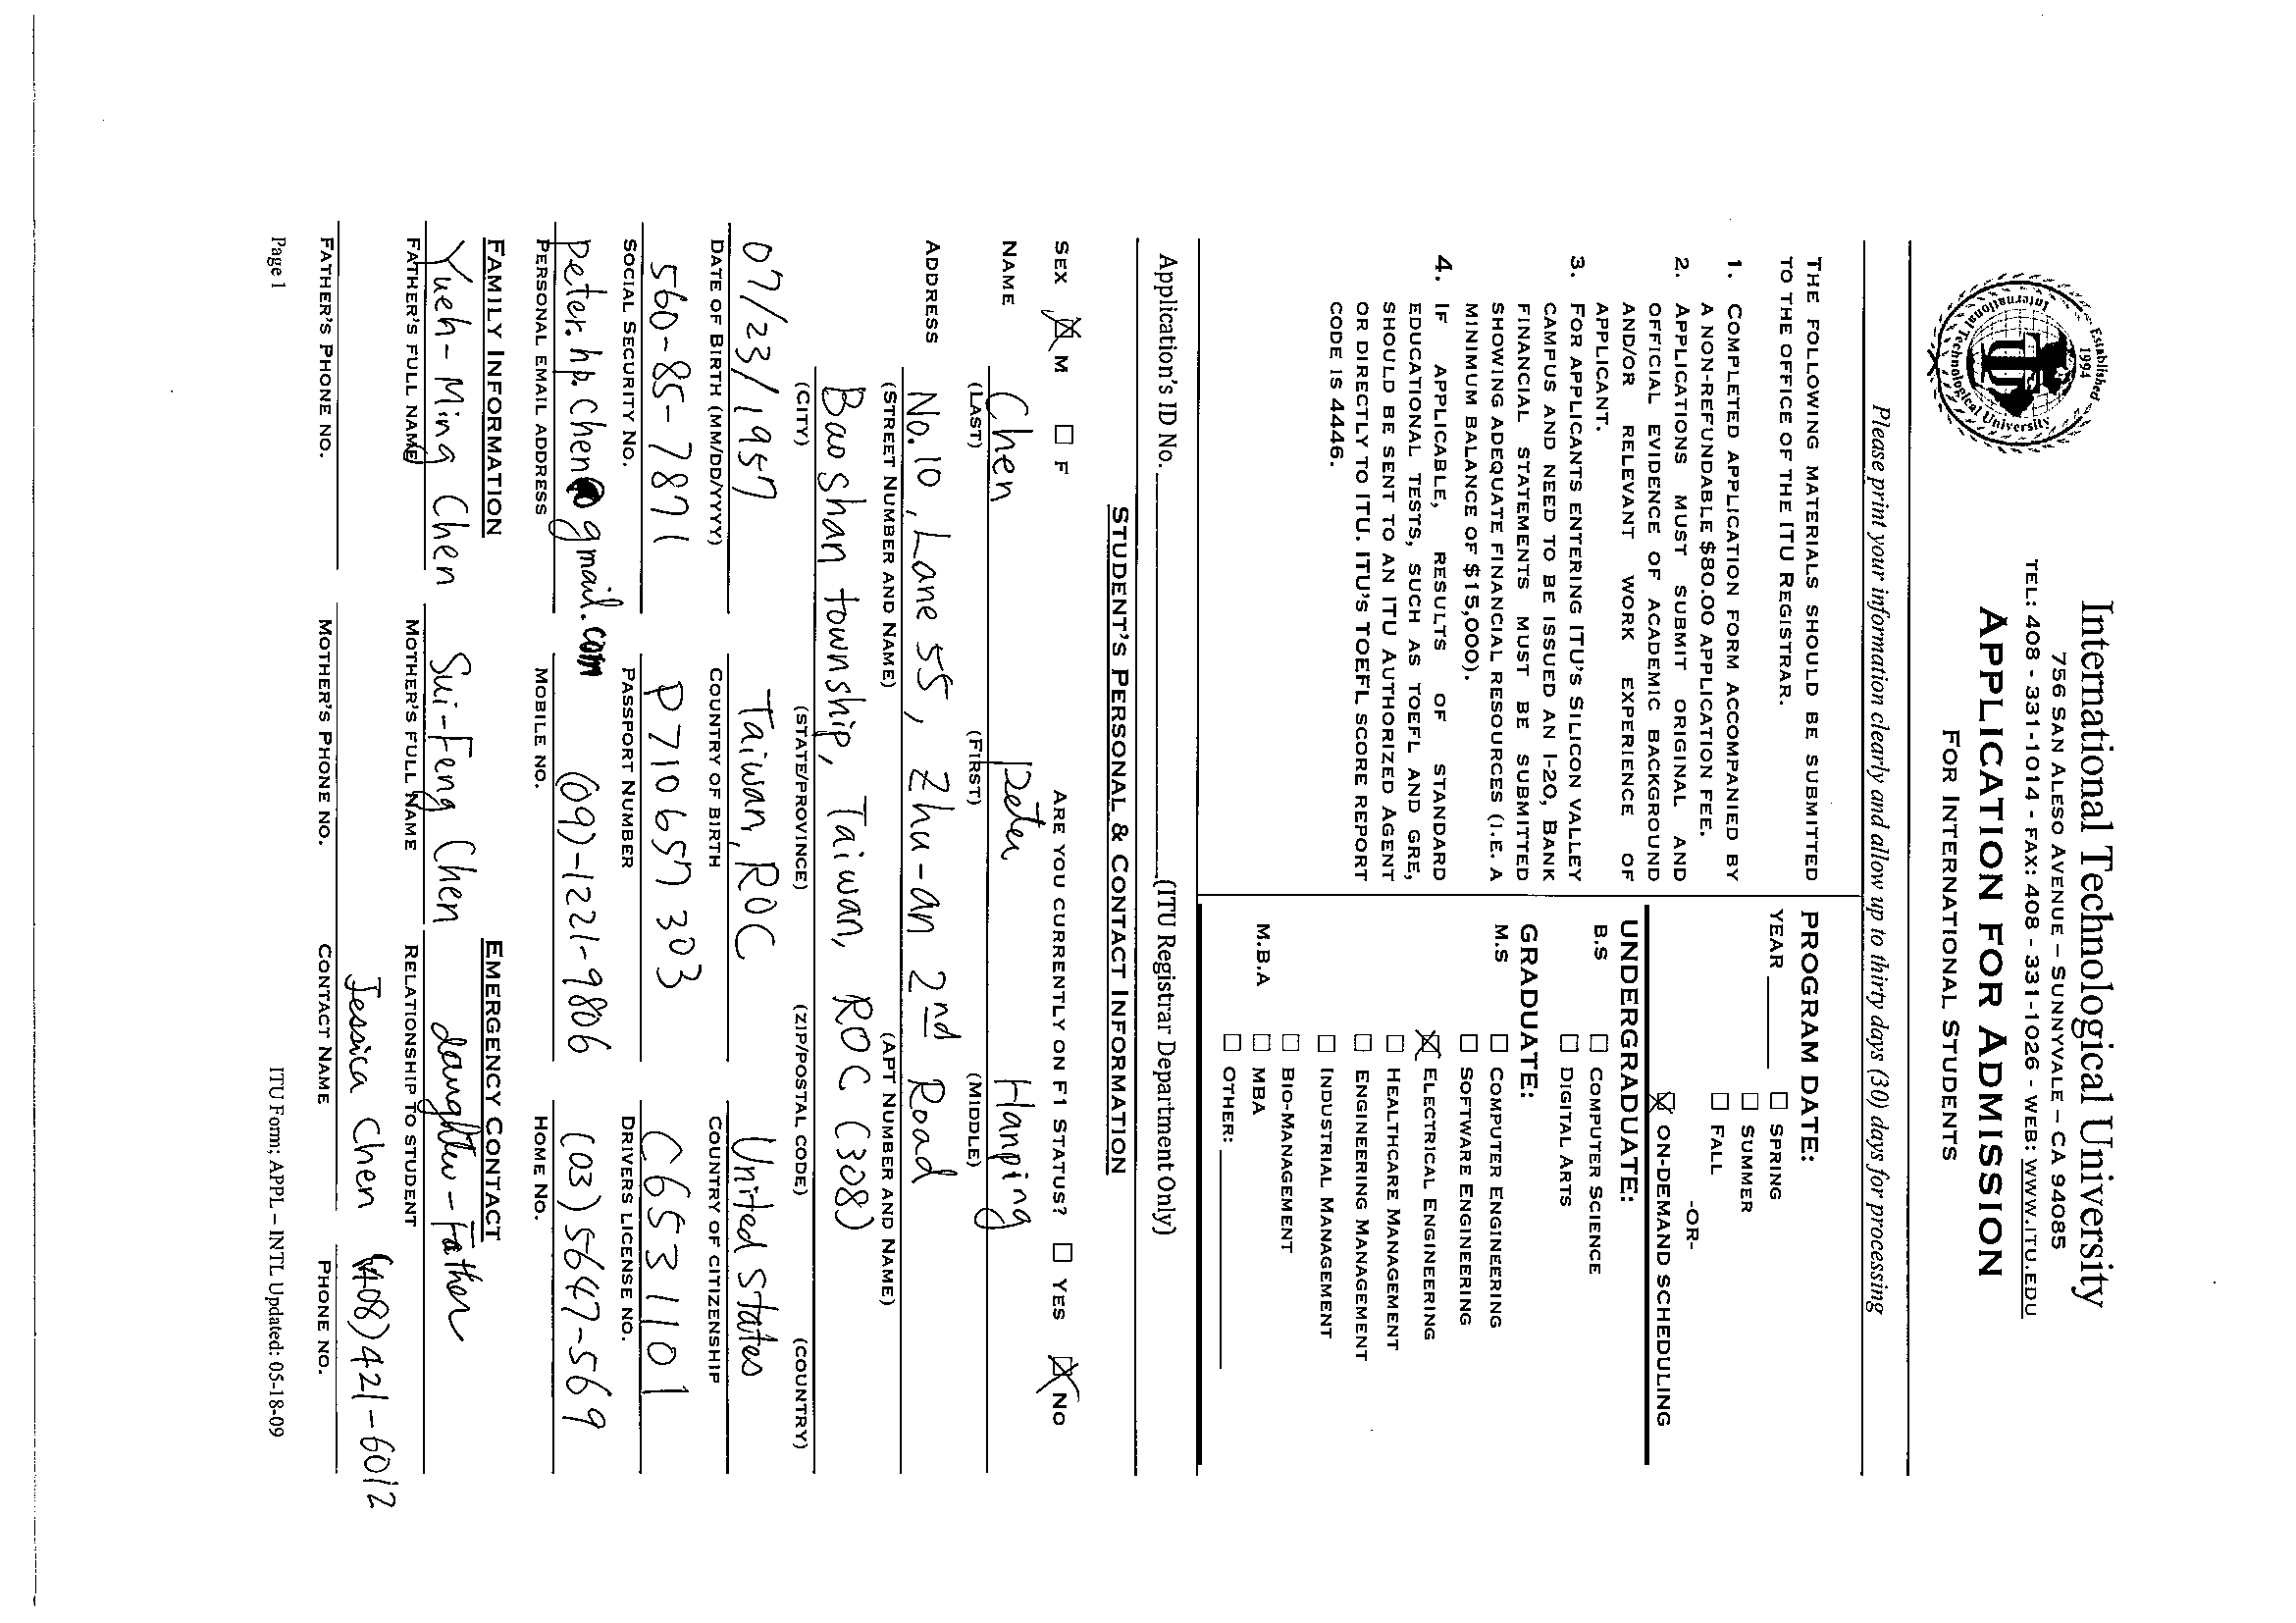 International Technological University
756 SAN ALESO AVENUE – SUNNYVALE – CA 94085
TEL: 408 - 331-1014 - FAX: 408 - 331-1026 - WEB: WWW.ITU.EDU
APPLICATION FOR ADMISSION
FOR INTERNATIONAL STUDENTS
Established 1994
International Technological University
ITU
Please print your information clearly and allow up to thirty days (30) days for processing
THE FOLLOWING MATERIALS SHOULD BE SUBMITTED
TO THE OFFICE OF THE ITU REGISTRAR.
1. COMPLETED APPLICATION FORM ACCOMPANIED BY
A NON-REFUNDABLE $80.00 APPLICATION FEE.
2. APPLICATIONS MUST SUBMIT ORIGINAL AND
OFFICIAL EVIDENCE OF ACADEMIC BACKGROUND
AND/OR RELEVANT WORK EXPERIENCE OF
APPLICANT.
3. FOR APPLICANTS ENTERING ITU'S SILICON VALLEY
CAMPUS AND NEED TO BE ISSUED AN I-20, BANK
FINANCIAL STATEMENTS MUST BE SUBMITTED
SHOWING ADEQUATE FINANCIAL RESOURCES (I.E. A
MINIMUM BALANCE OF $15,000).
4. IF APPLICABLE, RESULTS OF STANDARD
EDUCATIONAL TESTS, SUCH AS TOEFL AND GRE,
SHOULD BE SENT TO AN ITU AUTHORIZED AGENT
OR DIRECTLY TO ITU. ITU'S TOEFL SCORE REPORT
CODE IS 4446.
PROGRAM DATE:
YEAR ☐ SPRING
☐ SUMMER
☐ FALL
-OR-
☒ ON-DEMAND SCHEDULING
UNDERGRADUATE:
B.S ☐ COMPUTER SCIENCE
☐ DIGITAL ARTS
GRADUATE:
M.S ☐ COMPUTER ENGINEERING
☐ SOFTWARE ENGINEERING
☒ ELECTRICAL ENGINEERING
☐ HEALTHCARE MANAGEMENT
☐ ENGINEERING MANAGEMENT
☐ INDUSTRIAL MANAGEMENT
☐ BIO-MANAGEMENT
M.B.A ☐ MBA
☐ OTHER:
Application's ID No. (ITU Registrar Department Only)
STUDENT'S PERSONAL & CONTACT INFORMATION
SEX ☒ M ☐ F ARE YOU CURRENTLY ON F1 STATUS? ☐ YES ☒ NO
NAME Chen Peter Hanping
(LAST) (FIRST) (MIDDLE)
ADDRESS No.10, Lane 55, Zhu-an 2nd Road
(STREET NUMBER AND NAME) (APT NUMBER AND NAME)
Baoshan township, Taiwan, ROC (308)
(CITY) (STATE/PROVINCE) (ZIP/POSTAL CODE) (COUNTRY)
07/23/1957 Taiwan, ROC United States
DATE OF BIRTH (MM/DD/YYYY) COUNTRY OF BIRTH COUNTRY OF CITIZENSHIP
560-85-7871 P710657303 C6531101
SOCIAL SECURITY NO. PASSPORT NUMBER DRIVERS LICENSE NO.
peter.hp.chen@gmail.com (09)-1221-9806 (03)5647-569
PERSONAL EMAIL ADDRESS MOBILE NO. HOME NO.
FAMILY INFORMATION EMERGENCY CONTACT
Yueh-Ming Chen Sui-Feng Chen daughter-Father
FATHER'S FULL NAME MOTHER'S FULL NAME RELATIONSHIP TO STUDENT
Jessica Chen (408)421-6012
FATHER'S PHONE NO. MOTHER'S PHONE NO. CONTACT NAME PHONE NO.
Page 1 ITU Form; APPL – INTL Updated: 05-18-09